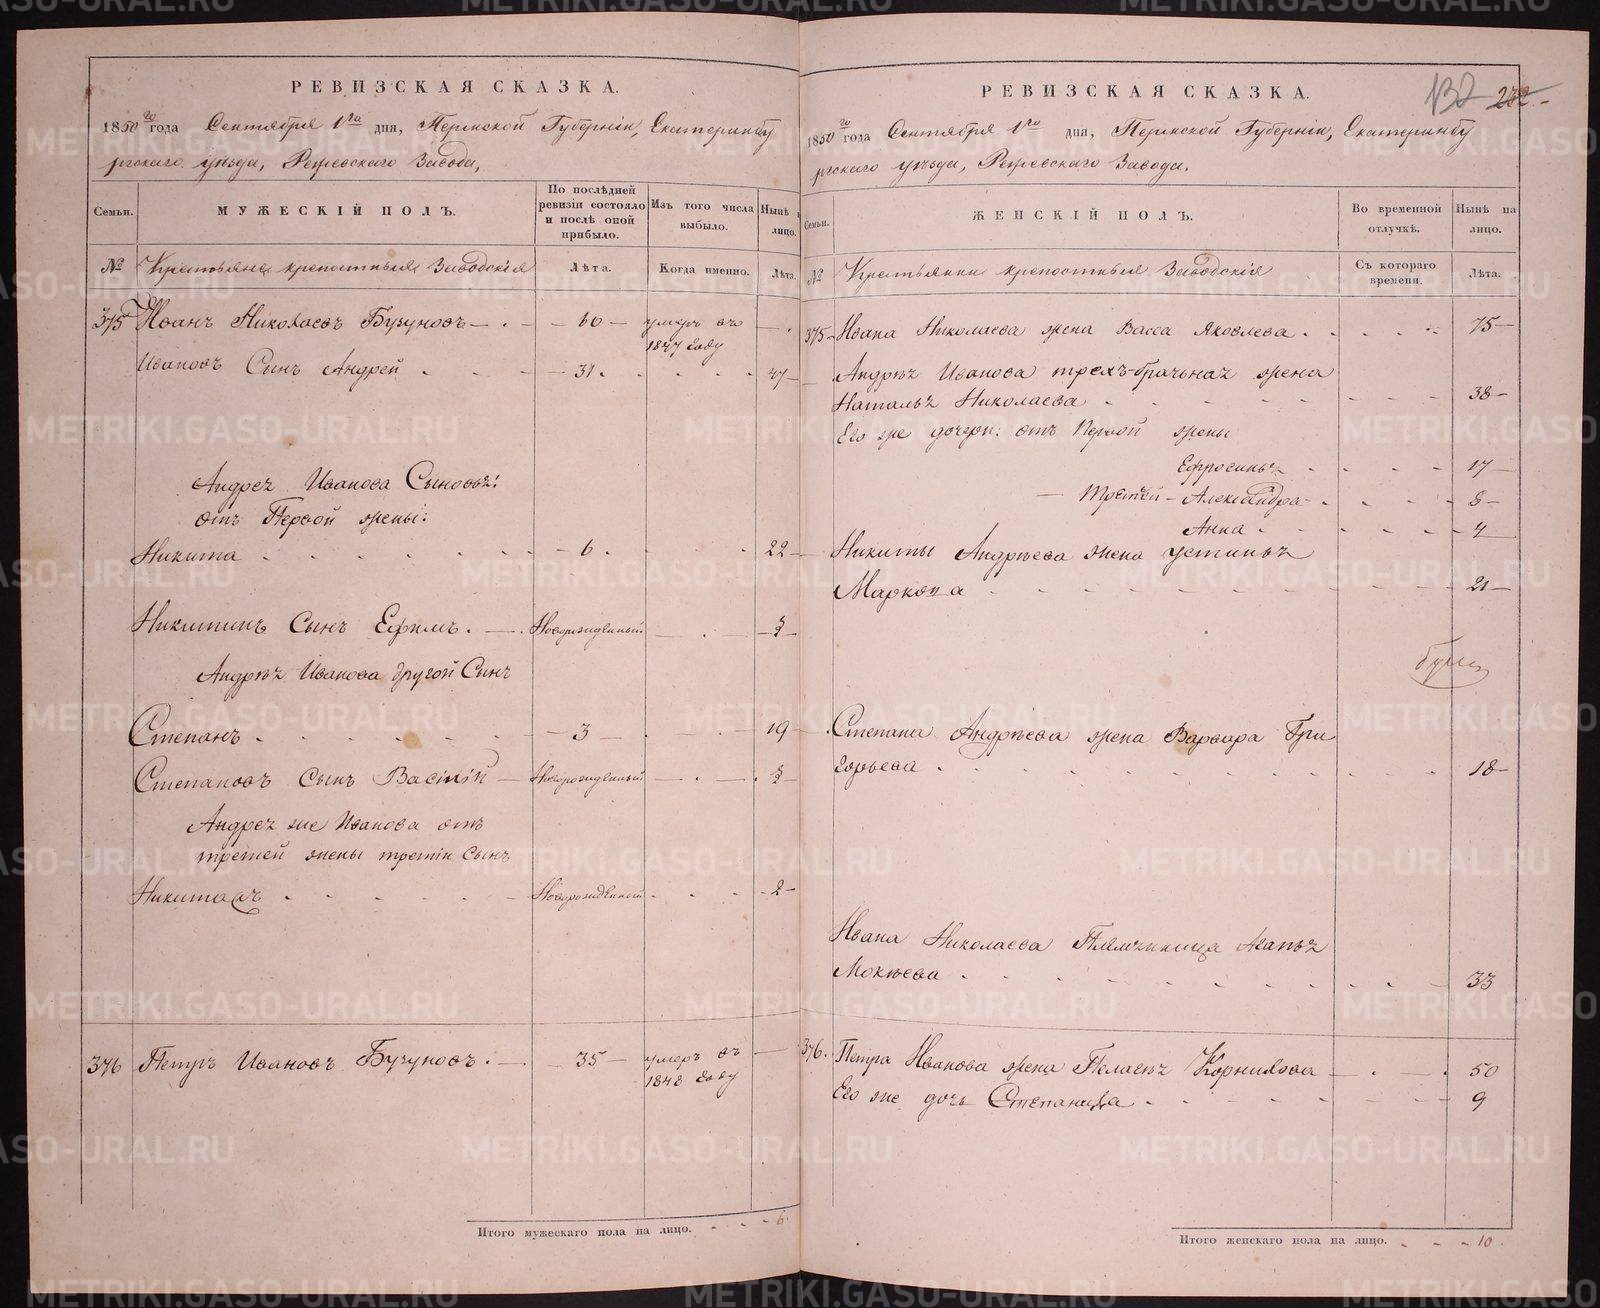 РЕВИЗСКАЯ СКАЗКА.
1850го года Сентября 1го дня, Пермской Губерніи, Екатеринбу
ргскаго уѣзда, Режевскаго Завода,
Семьи.
МУЖЕСКІЙ ПОЛЪ.
По послѣдней ревизіи состояло и послѣ оной прибыло.
Изъ того числа выбыло.
Нынѣ на лицо.
№ Крестьяне крепостныя Заводскія
Лѣта.
Когда именно.
Лѣта.
375 Иванъ Николаевъ Бузуновъ — 60 — умеръ въ
1847 году
Ивановъ Сынъ Андрей — 31 47
Андрея Иванова Сыновья:
отъ Первой жены:
Никита 6 22
Никитинъ Сынъ Ефимъ. Новорожденный
Андрея Иванова другой Сынъ
Степанъ 3 19
Степановъ Сынъ Новорожденный
Андрея же Иванова отъ
третей жены третіи сынъ
Новорожденный 2
376 Петръ Ивановъ Бузуновъ. 35 — умеръ въ
1848 году
Итого мужескаго пола на лицо. 6.
РЕВИЗСКАЯ СКАЗКА.
132 232
1850го года Сентября 1го дня, Пермской Губерніи, Екатеринбу
ргскаго уѣзда, Режевскаго Завода.
Семьи.
ЖЕНСКІЙ ПОЛЪ.
Во временной отлучкѣ.
Нынѣ на лицо.
№ Крестьянки крепостныя Заводскія
Съ котораго времени.
Лѣта.
375 Ивана Николаева жена Васса Яковлева 75
Андрея Иванова трехъ-брачная жена
Наталья Николаева 38
Его же дочери: отъ Первой жены
Ефросинья 17
Третьей — Александра 8
Анна 4
Никиты Андрѣева жена Устинья
Маркова 21
Степана Андрѣева жена Варвара Гри
горьева 18
Ивана Николаева Племянница Агапья
Мокѣева 33
376. Петра Иванова жена Пелагея Корнилова 50
Его же дочь Степанида 9
Итого женскаго пола на лицо. 10.
METRIKI.GASO-URAL.RU